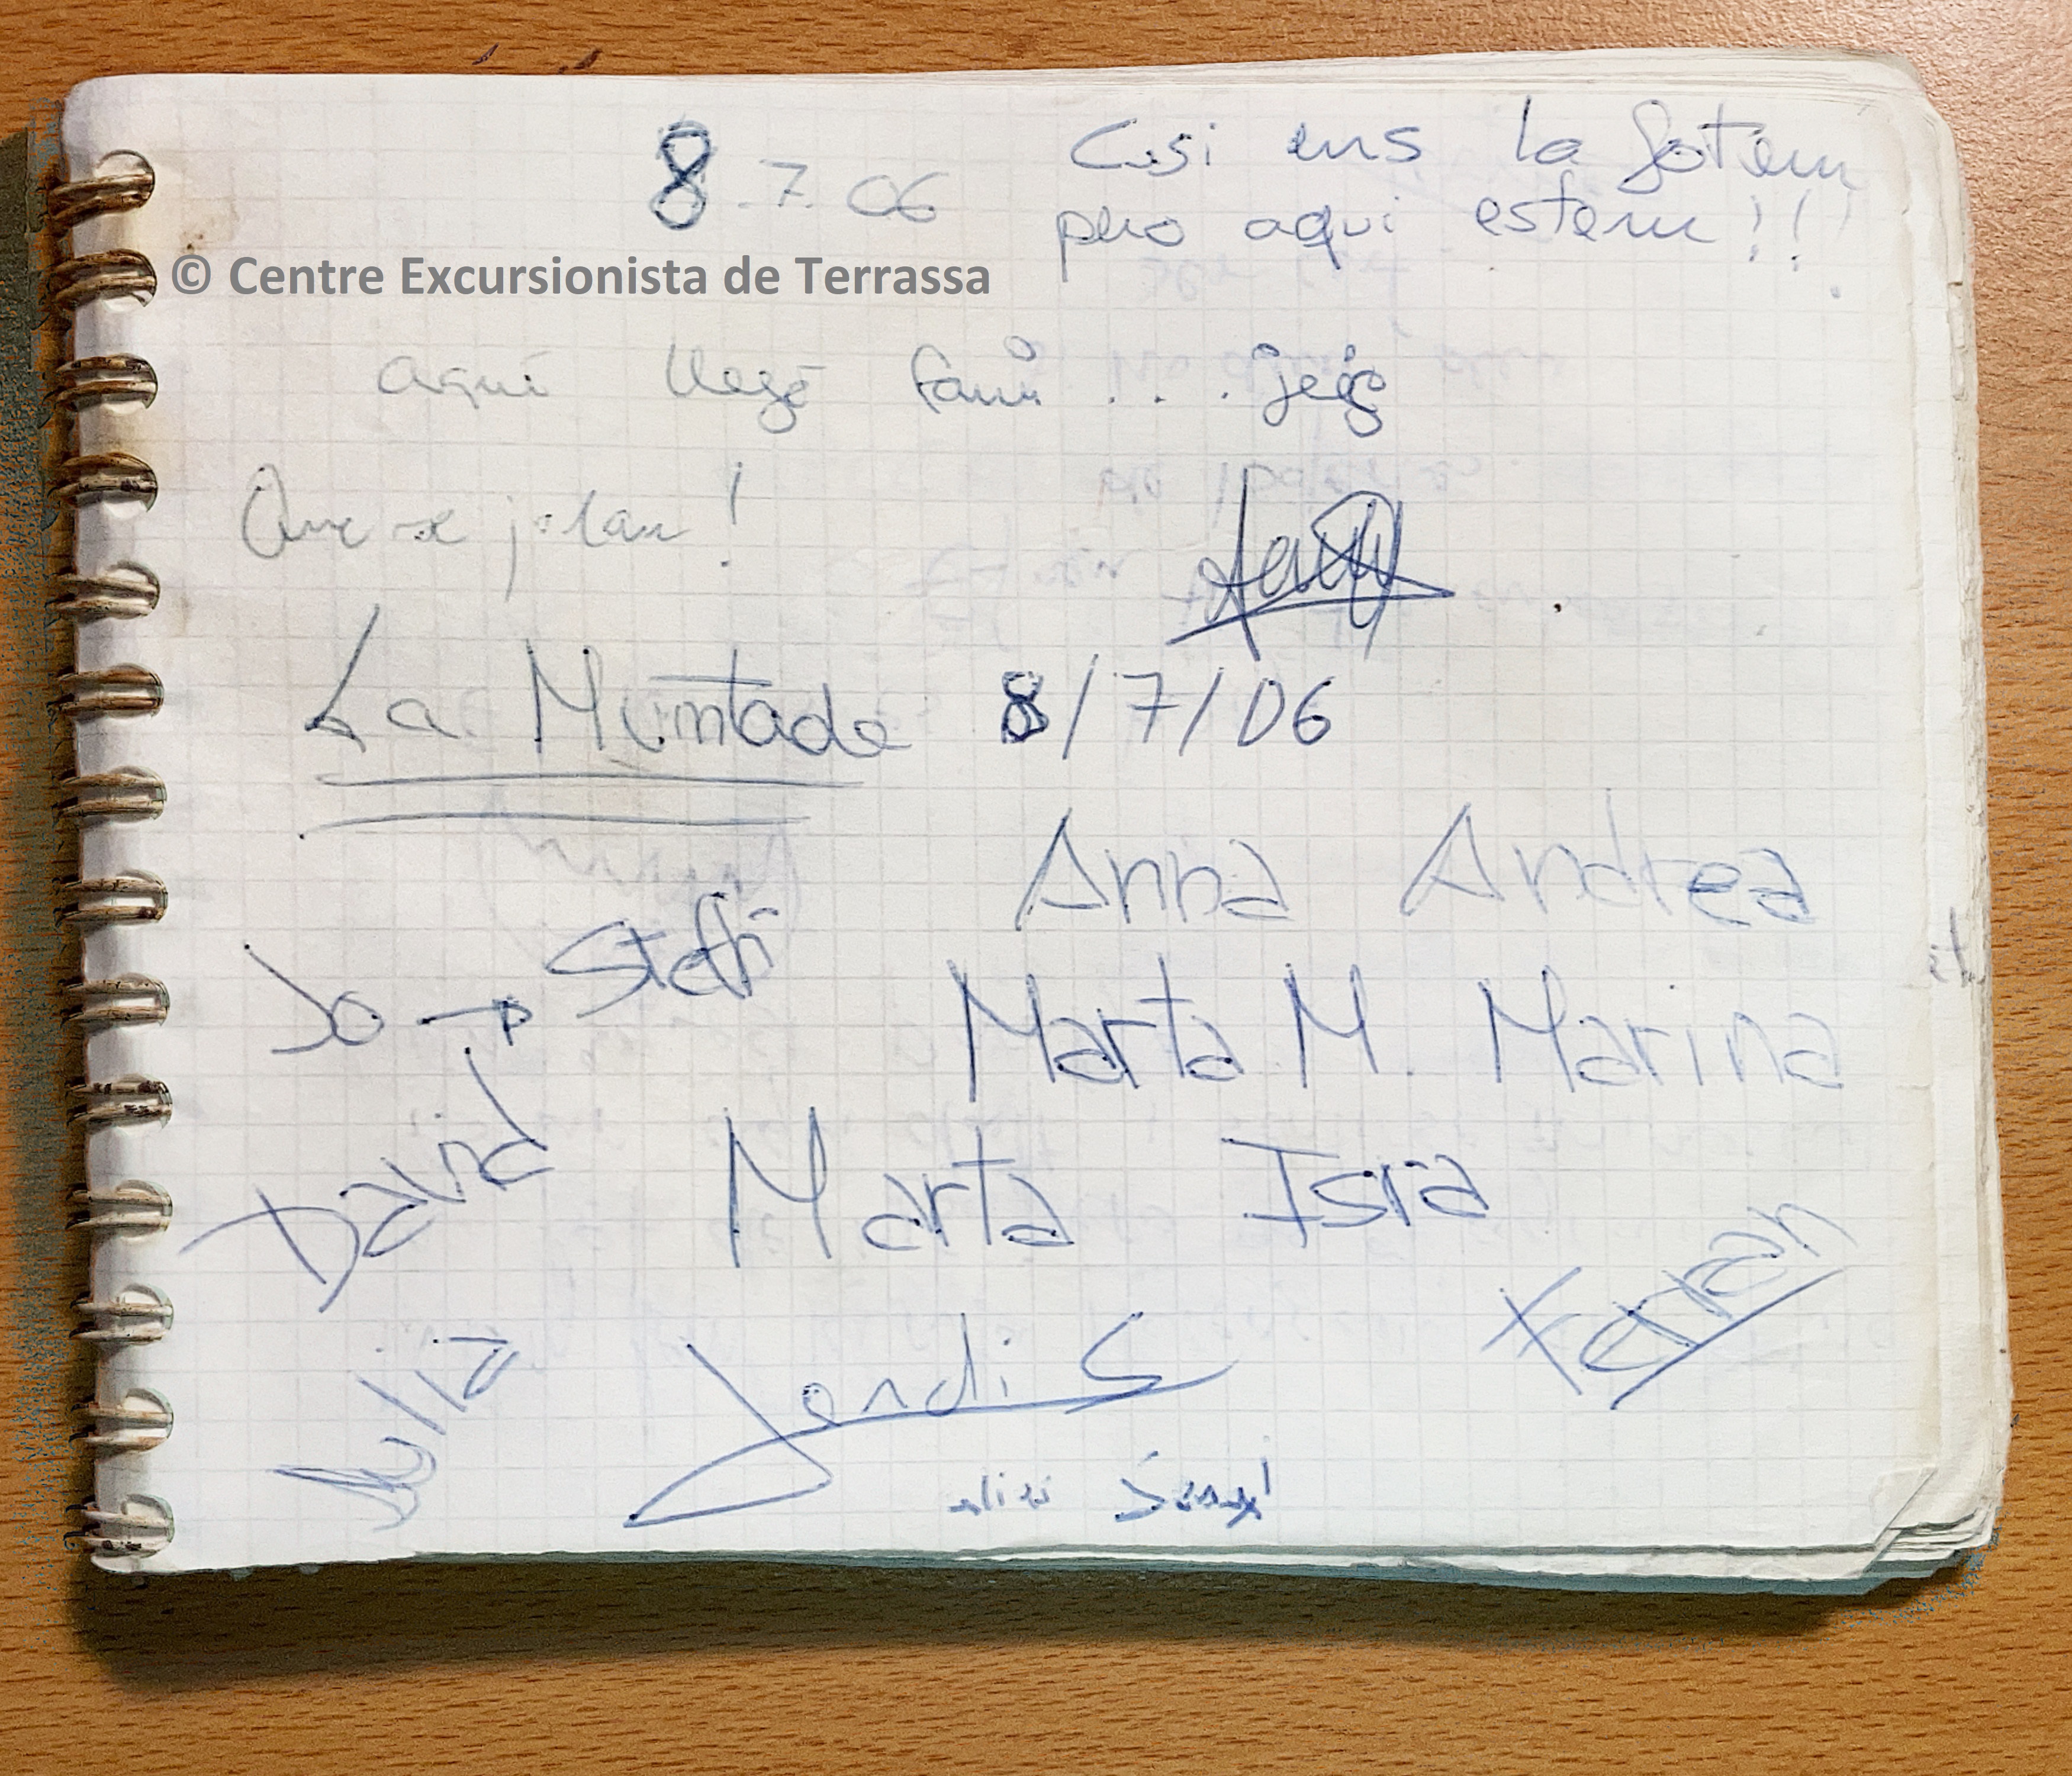 8.7.06
Casi ens la fotem
pero aqui estem!!!
© Centre Excursionista de Terrassa
aquí llegó
Que se jolan!
La Muntada 8/7/06
Anna Andrea
Jo → Steffi
Marta M. Marina
David
Marta Isra
Ferran
Julia
Jordi S